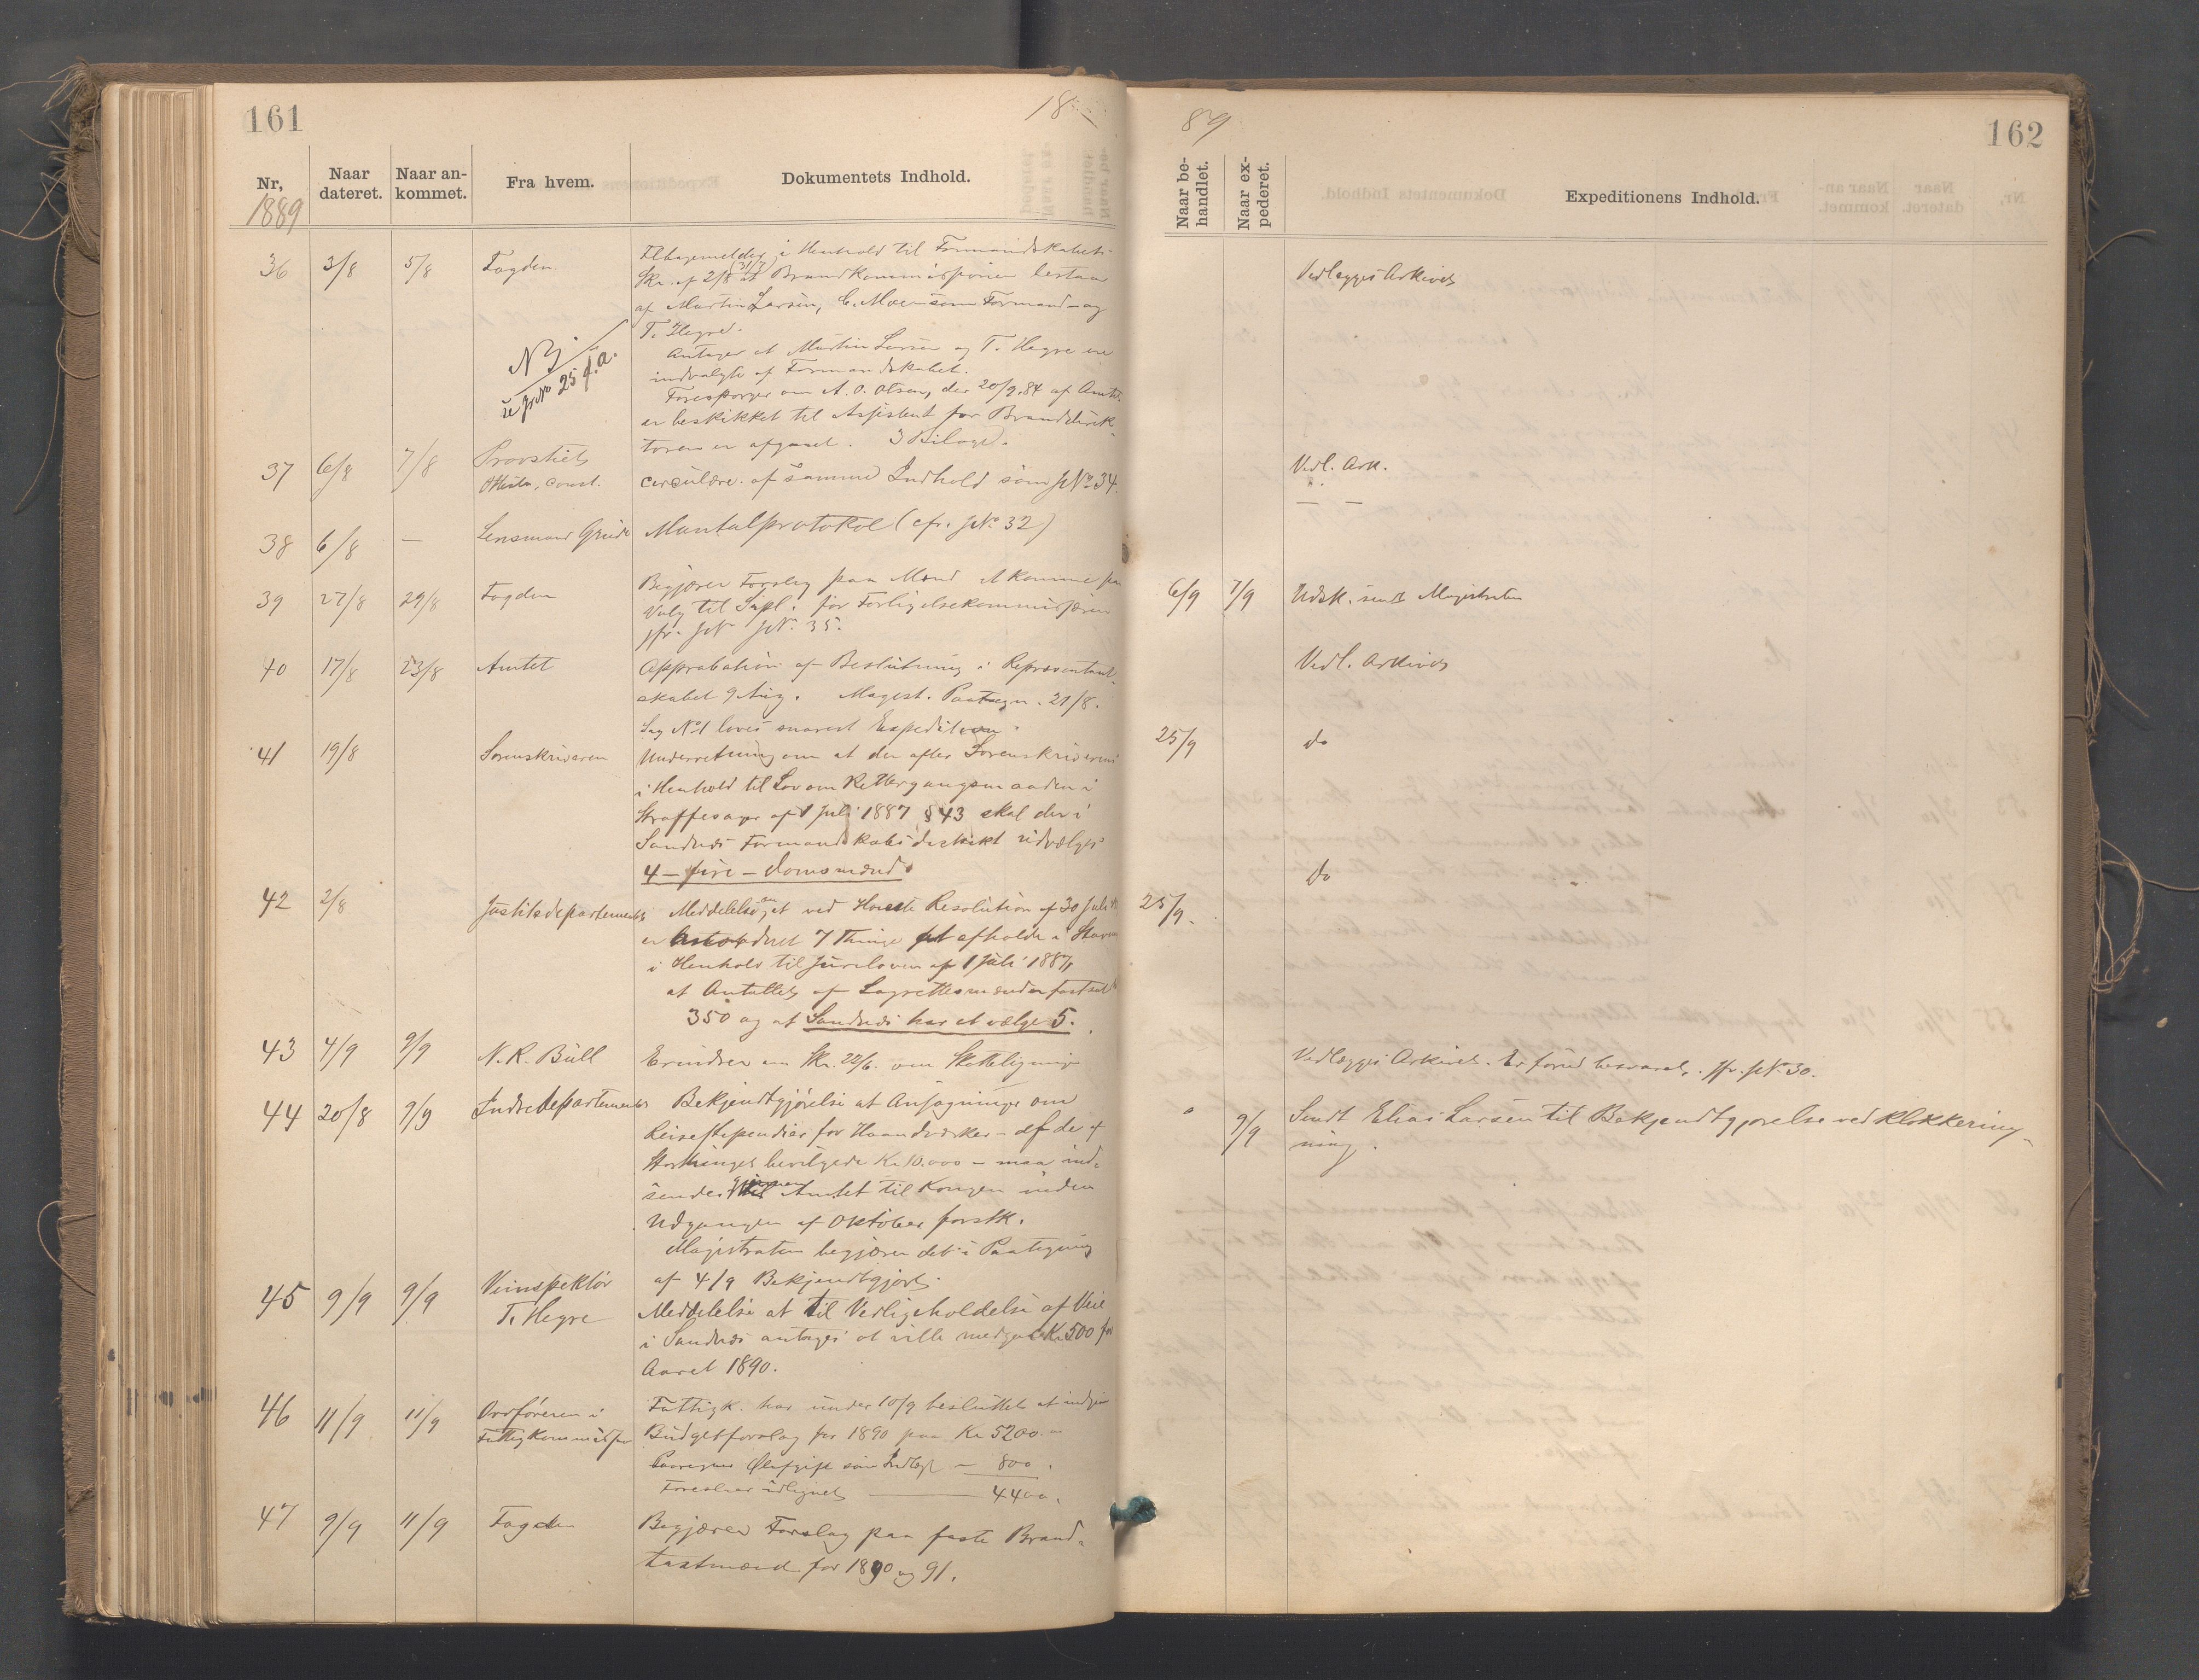 161
18
Nr,
1889
Naar dateret.
Naar ankommet.
Fra hvem.
Dokumentets Indhold.
36 3/8 5/8 Fogden
i Henhold til Formandskabets
Skr. af 2/8 (31/7) at Brandkommissionen bestaar
af Martin Larsen, C. Moen som Formand og
T. Hegre.
NB.
se jr No 25 f. a.
Antager at Martin Larsen og T. Hegre ere
indvalgte af Formandskabet.
Forespørger om A. O. Olsen, der 20/9.84 af Amtet
er beskikket til Assistent for Branddirek-
toren er afgaaet. 3 Bilage.
37 6/8 7/8 Provstiets
const.
Circulære af samme Indhold som jNo 34.
38 6/8 — Lensmand Grude
Mantalprotokol (cfr. jNo 32)
39 27/8 29/8 Fogden
Begjærer Forslag paa Mænd at komme paa
Valg til Supl. for Forligelseskommissæren
jfr. jNo 35.
40 17/8 23/8 Amtet
Approbation af Beslutning i Repræsentant-
skabet 9 Aug. Magist. Paategn. 21/8.
Sag No 1 loves snarest Expedition.
41 19/8 Sorenskriveren
Underretning om at der efter Sorenskriveren
i Henhold til Lov om Rettergangsmaaden i
Straffesager af 1 Juli 1887 § 43 skal der i
Sandnes Formandskabsdistrikt udvælges
4 – fire – Domsmænd.
42 2/8 Justitsdepartementet
Meddelelse om, at ved Høieste Resolution af 30 Juli
er 7 Thinge at afholde i
i Henhold til Jurieloven af 1 Juli 1887,
at Antallet af Lagrettesmænd er fastsat
350 og at Sandnes har at vælge 5.
43 4/9 9/9 N. R. Bull
Erindrer om Skr. 22/6. om Skatteligning
44 20/8 9/9 Indredepartementet
Bekjendtgjørelse at Ansøgninger om
Reisestipendier for Haandværker – af de af
Storthinget bevilgede Kr 10.000 – maa ind-
sendes gjennem Amtet til Kongen inden
Udgangen af Oktober førstk.
Magistraten begjærer det i Paategning
af 4/9 Bekjendtgjort.
45 9/9 9/9 Veiinspektør
T. Hegre
Meddelelse at til Vedligeholdelse af Veie
i Sandnes antages at ville medgaa Kr. 500 for
Aaret 1890.
46 11/9 11/9 Ordføreren i
Fattigkommissionen
Fattigk. har under 10/9 besluttet at indgive
Budgetforslag for 1890 paa Kr 5200.–
Paaregnes Ølafgift som Indtægt — 800.
Foreslaar udlignet — 4400.
47 9/9 11/9 Fogden
Begjærer Forslag paa faste Brand-
taxtmænd for 1890 og 91.
89
162
Naar behandlet.
Naar expederet.
Expeditionens Indhold.
Vedlægges Arkivet
Vedl. Ark.
— —
6/9 7/9 Udsk. sendt Magistraten
Vedl. Arkivet
25/9 do
do
25/9.
Vedlægges Arkivet. Er forud besvaret. Jfr. jNo 30.
9/9 Sendt Elias Larsen til Bekjendtgjørelse ved Klokkering-
ning.